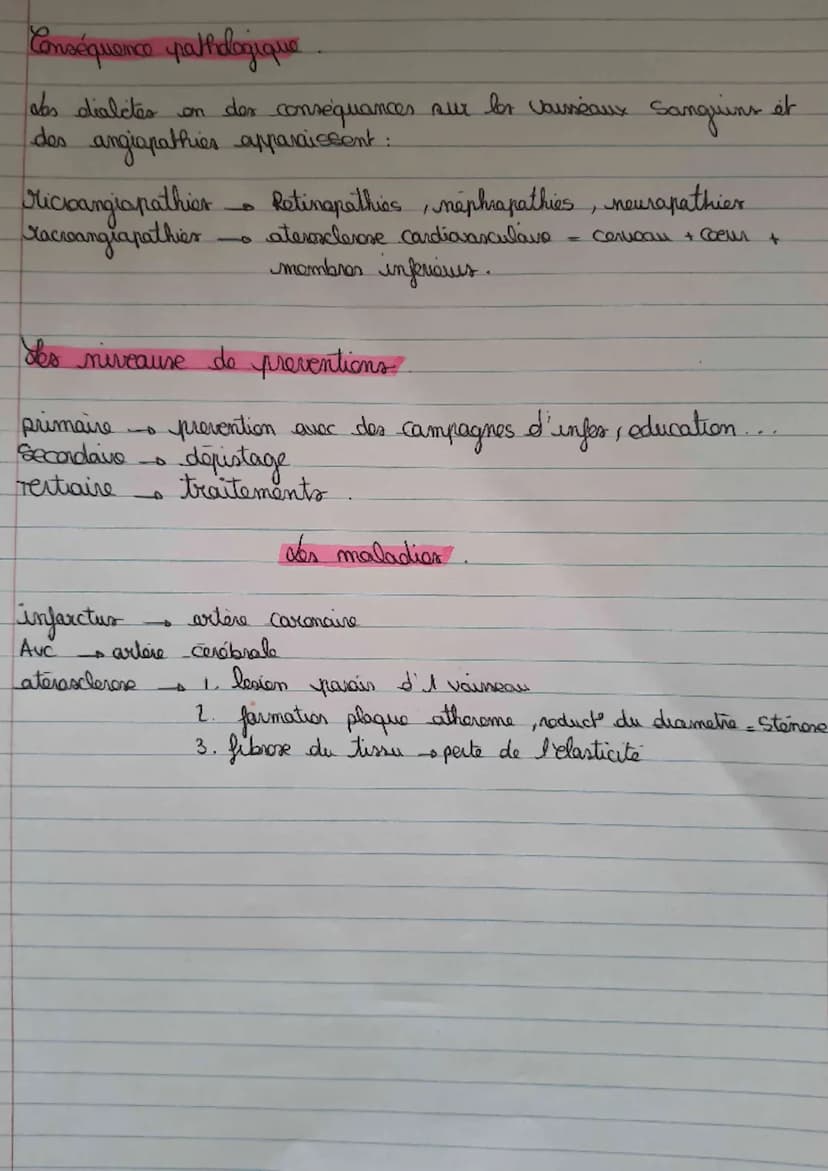 Conséquence pathologique.
Les diabètes on des conséquances sur les vaisseaux sanguins et
des angiopathies apparaissent :
Microangiopathies → Retinopathies, néphropathies, neuropathies
Macroangiopathies → aterosclerose cardiovasculaire = cerveau + coeur +
membres inferieurs.
Les niveause de preventions
primaire → prevention avec des campagnes d'infos, education...
Secondaire → dépistage
Tertiaire → traitements.
Les maladies.
infarctus → artère coronaire
AVC → artère cérébrale
aterosclerose → 1. lesion parois d'1 vaisseau
2. formation plaque atherome, reduct° du diametre = Sténose
3. fibrose du tissu → perte de l'elasticité